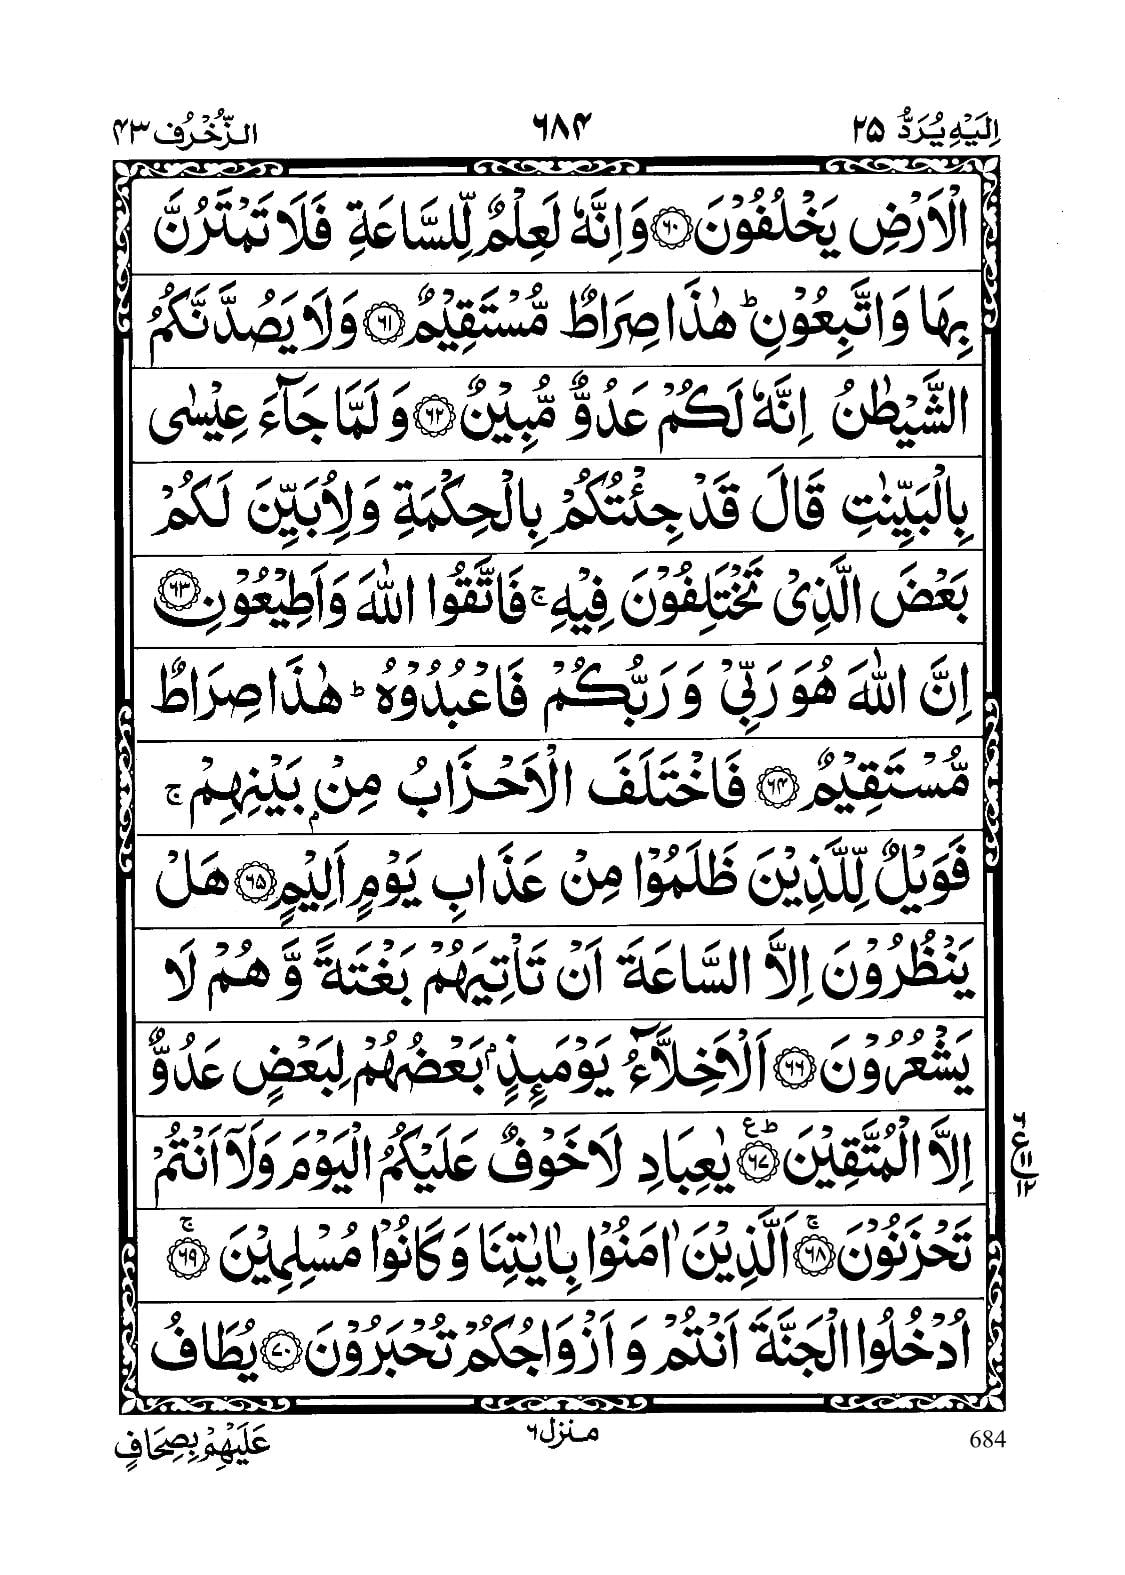 اِلَيْهِ يُرَدُّ ٢٥ ٦٨٤ الزُّخْرُف ٤٣
الْاَرْضِ يَخْلُفُوْنَ ﴿٦٠﴾ وَاِنَّهٗ لَعِلْمٌ لِّلسَّاعَةِ فَلَا تَمْتَرُنَّ
بِهَا وَاتَّبِعُوْنِ ؕ هٰذَا صِرَاطٌ مُّسْتَقِيْمٌ ﴿٦١﴾ وَلَا يَصُدَّنَّكُمُ
الشَّيْطٰنُ اِنَّهٗ لَكُمْ عَدُوٌّ مُّبِيْنٌ ﴿٦٢﴾ وَلَمَّا جَآءَ عِيْسٰى
بِالْبَيِّنٰتِ قَالَ قَدْ جِئْتُكُمْ بِالْحِكْمَةِ وَلِاُبَيِّنَ لَكُمْ
بَعْضَ الَّذِىْ تَخْتَلِفُوْنَ فِيْهِ ۚ فَاتَّقُوا اللّٰهَ وَاَطِيْعُوْنِ ﴿٦٣﴾
اِنَّ اللّٰهَ هُوَ رَبِّىْ وَرَبُّكُمْ فَاعْبُدُوْهُ ؕ هٰذَا صِرَاطٌ
مُّسْتَقِيْمٌ ﴿٦٤﴾ فَاخْتَلَفَ الْاَحْزَابُ مِنْۢ بَيْنِهِمْ ۚ
فَوَيْلٌ لِّلَّذِيْنَ ظَلَمُوْا مِنْ عَذَابِ يَوْمٍ اَلِيْمٍ ﴿٦٥﴾ هَلْ
يَنْظُرُوْنَ اِلَّا السَّاعَةَ اَنْ تَاْتِيَهُمْ بَغْتَةً وَّهُمْ لَا
يَشْعُرُوْنَ ﴿٦٦﴾ اَلْاَخِلَّآءُ يَوْمَئِذٍۢ بَعْضُهُمْ لِبَعْضٍ عَدُوٌّ
اِلَّا الْمُتَّقِيْنَ ﴿٦٧﴾ ؕع يٰعِبَادِ لَا خَوْفٌ عَلَيْكُمُ الْيَوْمَ وَلَآ اَنْتُمْ
ع ٦ ١١ ١٢
تَحْزَنُوْنَ ﴿٦٨﴾ ۚ اَلَّذِيْنَ اٰمَنُوْا بِاٰيٰتِنَا وَكَانُوْا مُسْلِمِيْنَ ﴿٦٩﴾ ۚ
اُدْخُلُوا الْجَنَّةَ اَنْتُمْ وَاَزْوَاجُكُمْ تُحْبَرُوْنَ ﴿٧٠﴾ يُطَافُ
684 منزل ٦ عَلَيْهِمْ بِصِحَافٍ